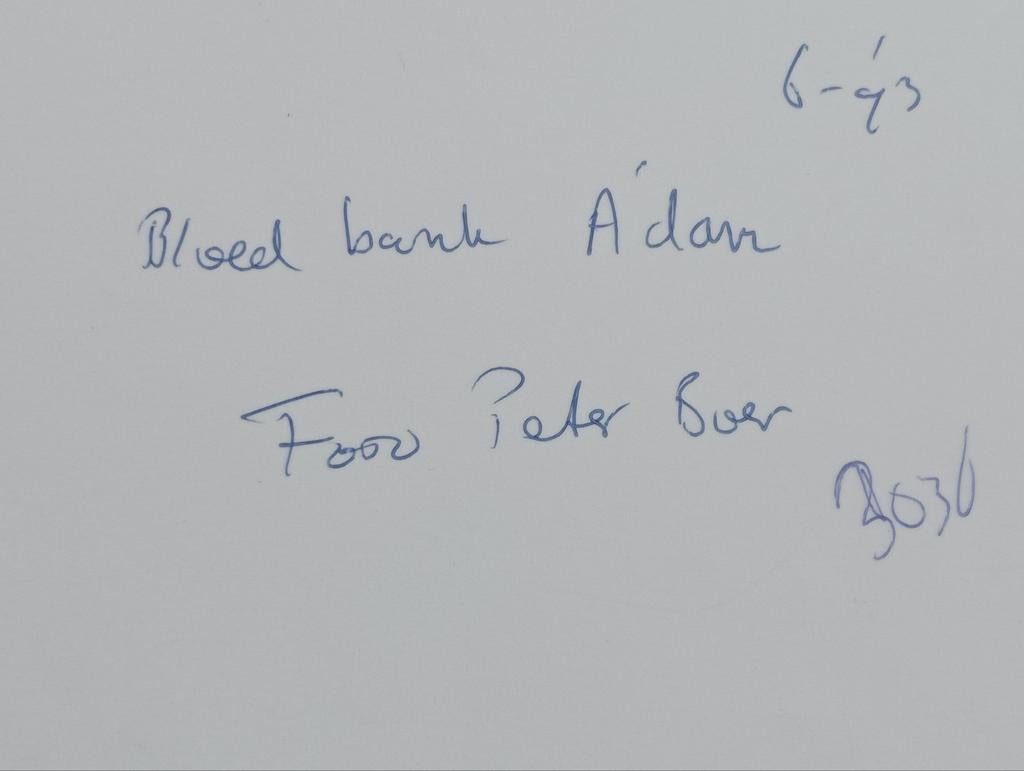 6-'93
Bloed bank A'dam
Foto Peter Boer
3036